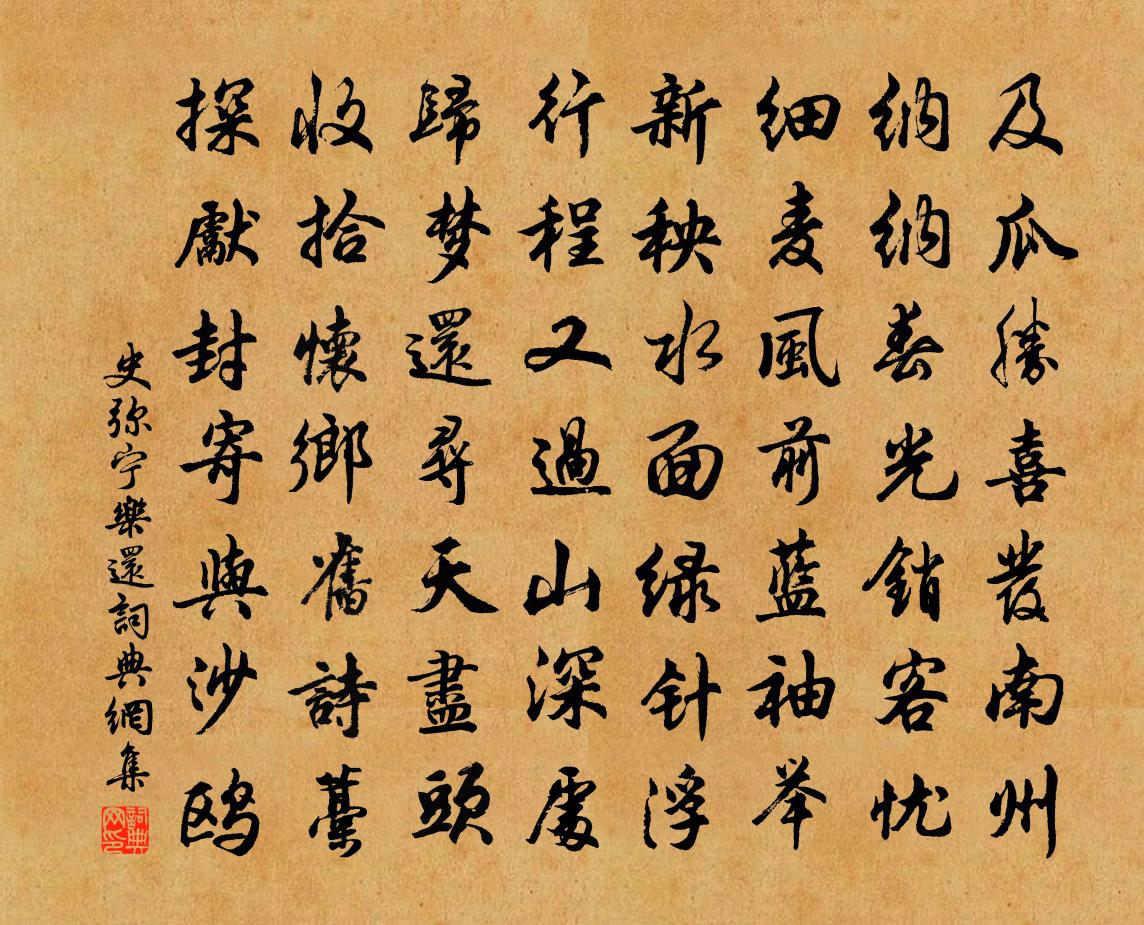 及瓜勝喜發南州
納納春光銷客忧
细麦風前藍袖举
新秧水面绿针浮
行程又過山深處
歸梦還尋天盡頭
收拾懷鄉舊詩藁
探獻封寄與沙鸥
史弥宁樂還詞典網集
詞典网印